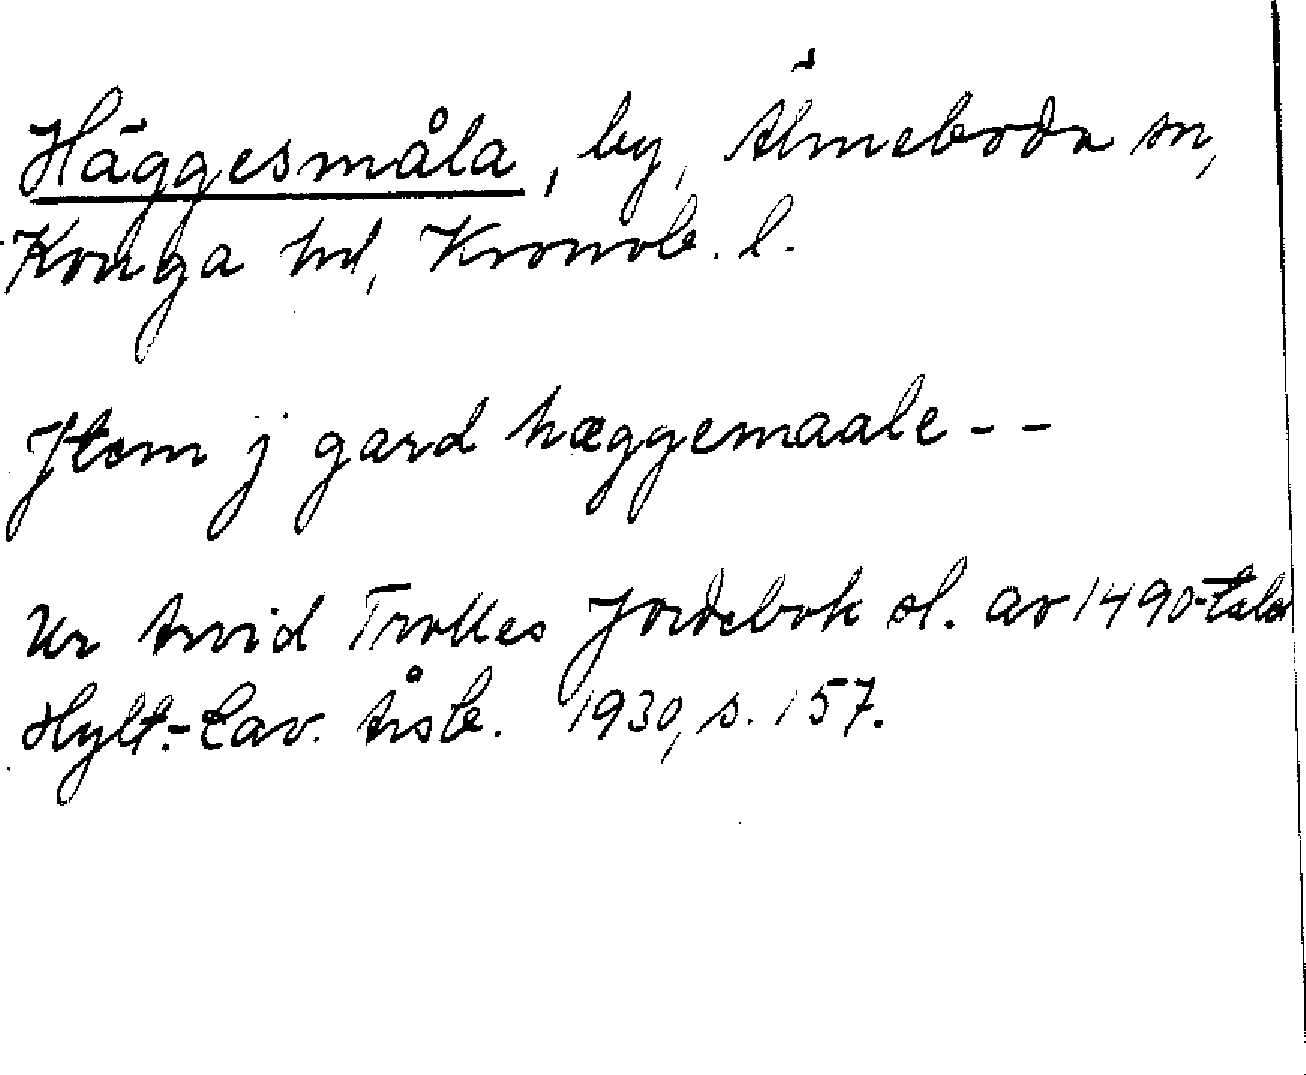 Häggesmåla, by, Älmeboda sn,
Konga hd, Kronob. l.
Jtem j gard hæggemaale - -
Ur Arvid Trolles Jordebok sl. av 1490-tale
Hylt.-Cav. Årsb. 1930, s. 157.